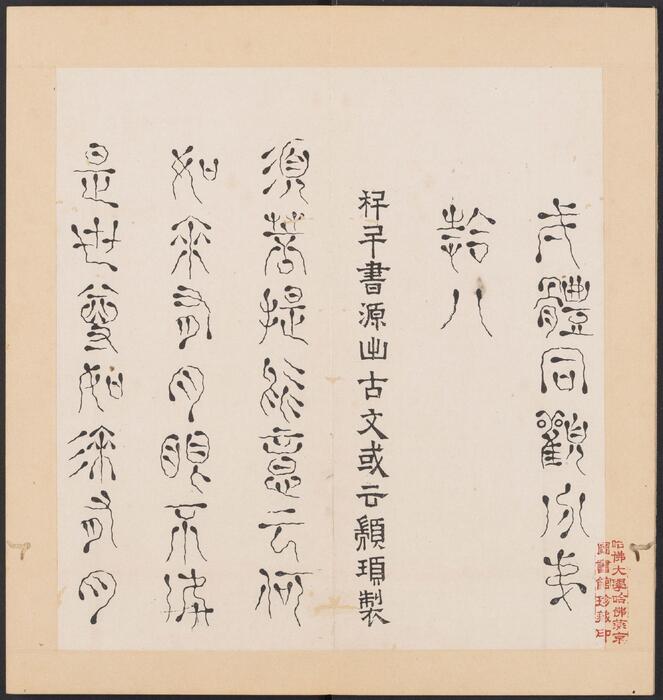 弌體同觀分弟
拾八
科斗書源出古文或云顓頊製
須菩提於意云何
如來有肉眼不如
是世尊如來有肉
哈佛大學哈佛燕京
圖書館珍藏印